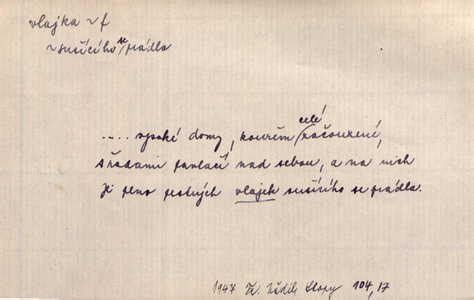 vlajka ~ f
~ sušícího se prádla
.... vysoké domy, kouřem celé začouzené,
s řadami pavlačí nad sebou, a na nich
je plno pestrých vlajek sušícího se prádla.
1947 Stopy 104,17